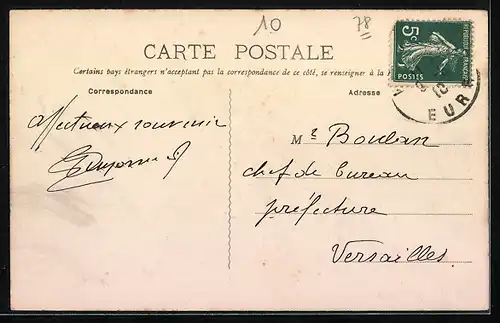 10
78
CARTE POSTALE
Certains pays étrangers n'acceptant pas la correspondance de ce côté, se renseigner à la
Correspondance
Adresse
5c
REPUBLIQUE FRANÇAISE
POSTES
10
EURE
affectueux souvenir
Mr Boudan
chef de bureau
préfecture
Versailles